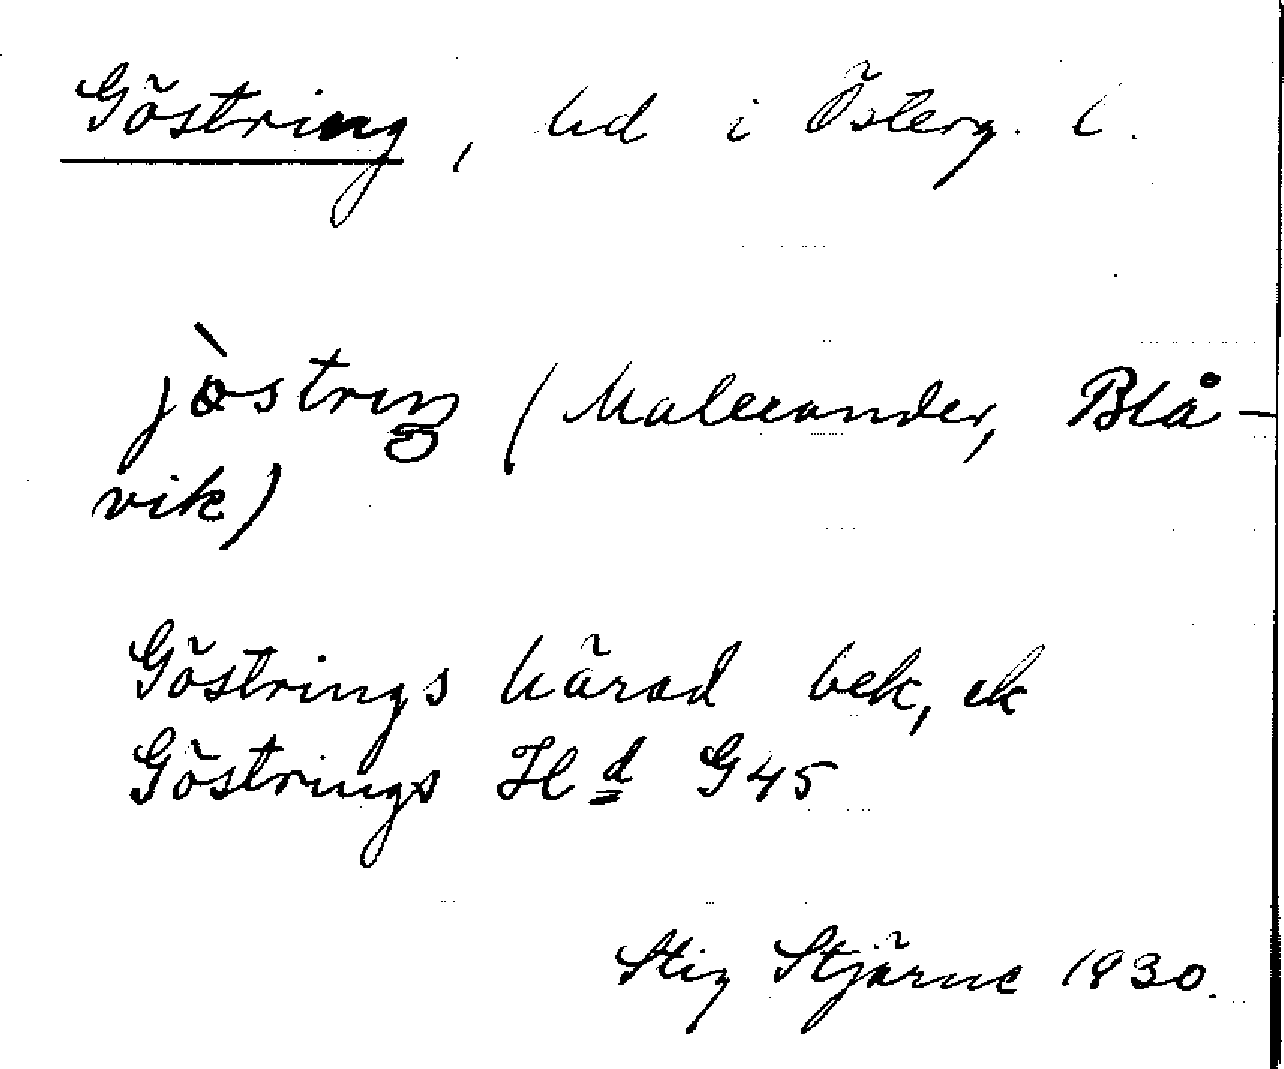 Göstring, hd i Österg. l.
jö̀string (Malexander, Blå-
vik)
Göstrings härad bek, ek
Göstrings Hd G45
Stig Stjärne 1930.